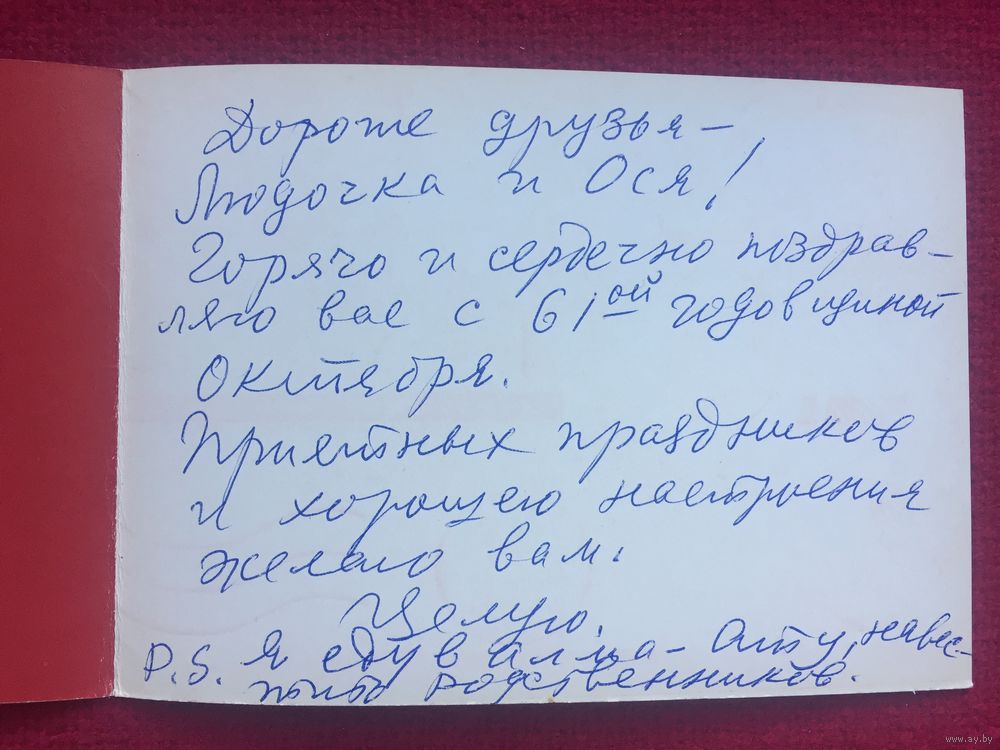 Дороже друзья –
Людочка и Ося!
Горячо и сердечно поздрав-
ляю вас с 61ой годовщиной
Октября.
Приятных праздников
и хорошего настроения
желаю вам.
Целую.
P.S. Я еду в Алма-Ату, навес-
тить родственников.
www.ay.by